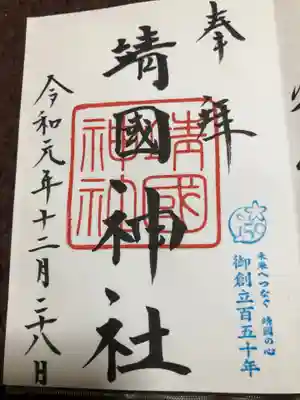 奉拝
靖國神社
靖國神社
令和元年十二月二十八日
150
未来へつなぐ 靖國の心
御創立百五十年